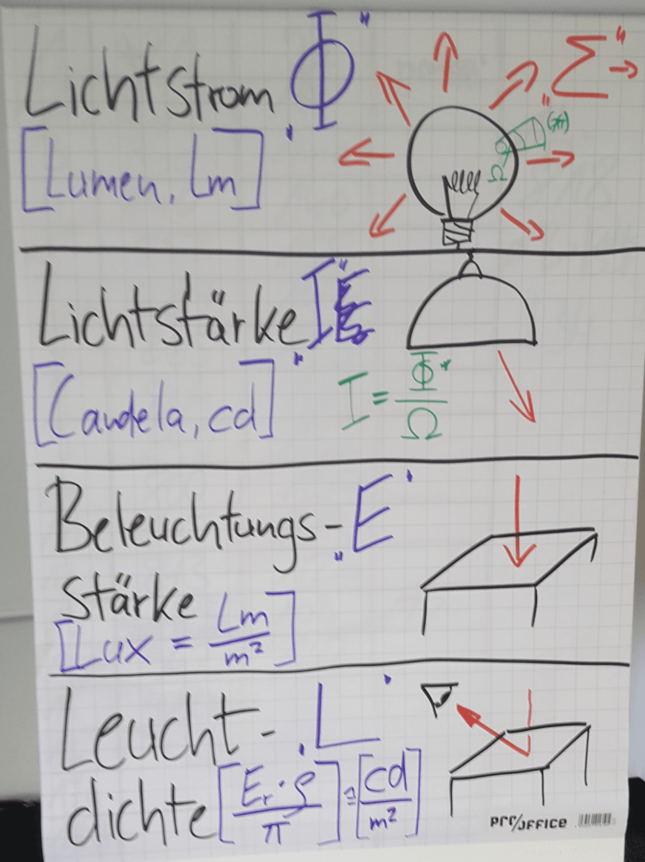 Lichtstrom "Φ"
[Lumen, Lm]
Σ"→
Ω
Lichtstärke "I"
[Candela, cd]
I = Φ / Ω
Beleuchtungs- "E"
stärke
[Lux = Lm / m²]
Leucht- "L"
dichte [Er · ρ / π] = [cd / m²]
PRO/OFFICE